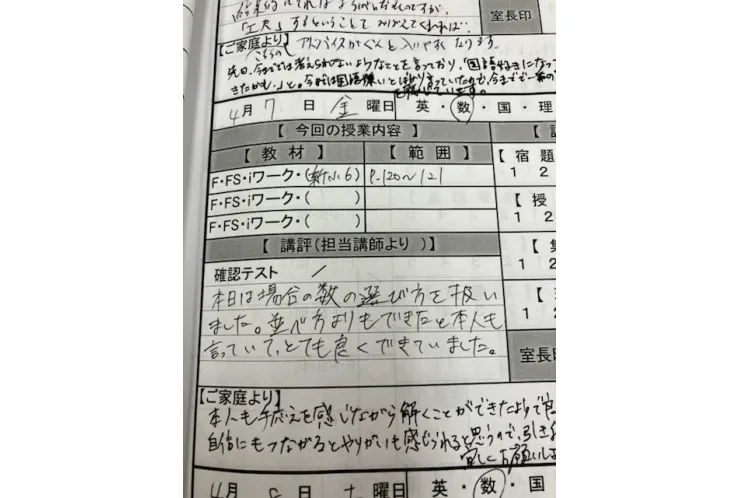 「工夫」するということしてみばんてくれれば…
室長印
【ご家庭より】こちらの アドバイスがぐんと入りやすくなります。
先日、今までは考えられないようなことを言っており、「国語好きになって
きたかも」と。今までは国語嫌いとばかり言っていたので、今までで一番の
4月 7 日 金 曜日 英・数・国・理
【 今回の授業内容 】
【 教材 】 【 範囲 】 【 宿題
F・FS・iワーク・(新小6) P.120〜121 1 2
F・FS・iワーク・( ) 【 授
F・FS・iワーク・( ) 1 2
【 講評(担当講師より )】
確認テスト /
1 2
本日は場合の数の選び方を扱い
ました。並べ方よりもできたと本人も
1 2
言っていて、とても良くできていました。
室長印
【ご家庭より】
本人も手応えを感じながら解くことができたようで
自信にもつながるとやりがいも感じられると思うので、引き
宜しくお願いし
4月 8 日 土 曜日 英・数・国